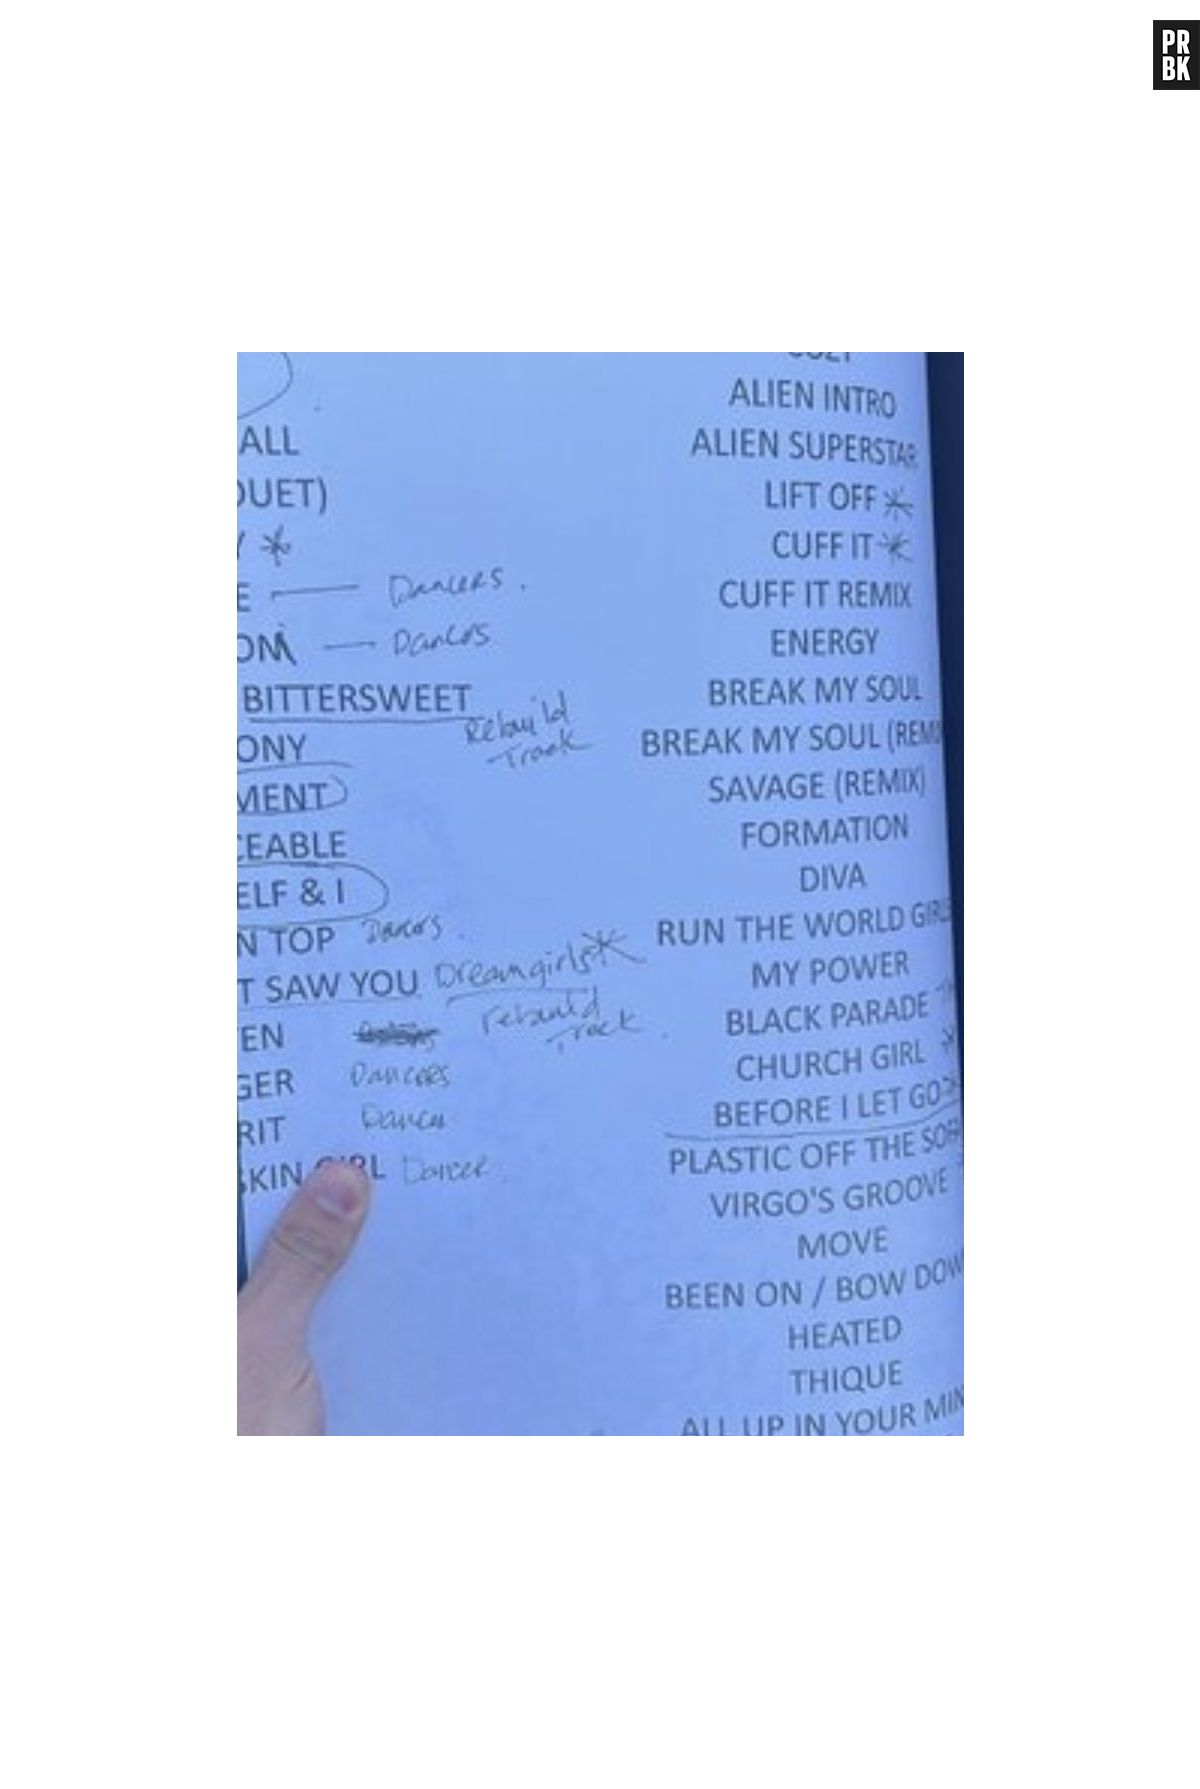 PR
BK
ALL
DUET)
Y *
E — Dancers.
OM — Dancers
BITTERSWEET
Rebuild
Track
ONY
MENT
CEABLE
ELF & I
N TOP Dancers.
T SAW YOU Dreamgirls*
rebuild
Track.
EN
GER Dancers
RIT Dancer
SKIN GIRL Dancer.
ALIEN INTRO
ALIEN SUPERSTAR
LIFT OFF *
CUFF IT *
CUFF IT REMIX
ENERGY
BREAK MY SOUL
BREAK MY SOUL (REM
SAVAGE (REMIX)
FORMATION
DIVA
RUN THE WORLD GIRL
MY POWER
BLACK PARADE
CHURCH GIRL *
BEFORE I LET GO
PLASTIC OFF THE SOF
VIRGO'S GROOVE
MOVE
BEEN ON / BOW DOW
HEATED
THIQUE
ALL UP IN YOUR MIN